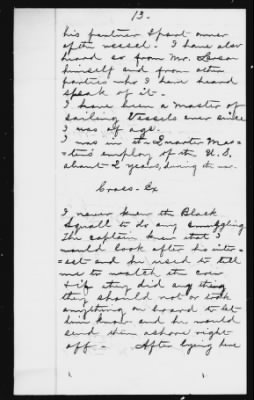 13.
his partner & part owner
of the vessel. I have also
heard so from Mr.
himself and from other
parties who I have heard
speak of it.
I have been a Master of
sailing Vessels ever since
I was of age.
I was in the Quarter Mas=
=ters employ of the U.S.
about 2 years, during the war.
Cross-Ex
I never knew the Black
Squall to do any smuggling
the captain knew that I
would look after his inter=
=est and he used to tell
me to watch the crew
& if they did any thing
they should not or took
anything on board to let
him know and he would
send them ashore right
off. After lying here